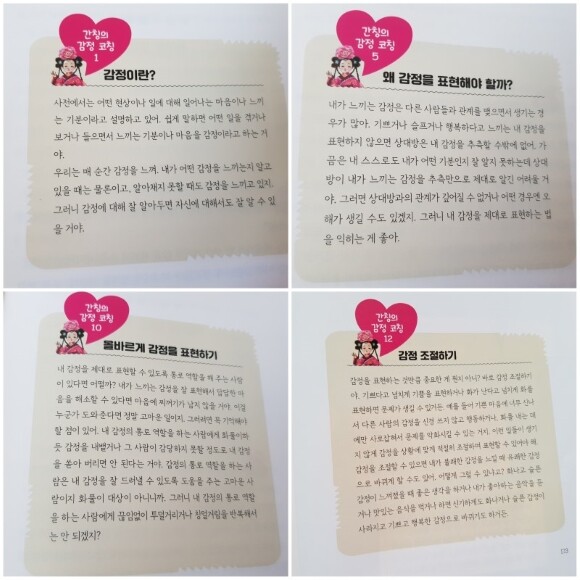 간칭의
감정 코칭
1
감정이란?
사전에서는 어떤 현상이나 일에 대해 일어나는 마음이나 느끼
는 기분이라고 설명하고 있어. 쉽게 말하면 어떤 일을 겪거나
보거나 들으면서 느끼는 기분이나 마음을 감정이라고 하는 거
야.
우리는 매 순간 감정을 느껴. 내가 어떤 감정을 느끼는지 알고
있을 때는 물론이고, 알아채지 못할 때도 감정을 느끼고 있지.
그러니 감정에 대해 잘 알아두면 자신에 대해서도 잘 알 수 있
을 거야.
간칭의
감정 코칭
5
왜 감정을 표현해야 할까?
내가 느끼는 감정은 다른 사람들과 관계를 맺으면서 생기는 경
우가 많아. 기쁘거나 슬프거나 행복하다고 느끼는 내 감정을
표현하지 않으면 상대방은 내 감정을 추측할 수밖에 없어. 가
끔은 내 스스로도 내가 어떤 기분인지 잘 알지 못하는데 상대
방이 내가 느끼는 감정을 추측만으로 제대로 알긴 어려울 거
야. 그러면 상대방과의 관계가 깊어질 수 없거나 어떤 경우엔 오
해가 생길 수도 있겠지. 그러니 내 감정을 제대로 표현하는 법
을 익히는 게 좋아.
간칭의
감정 코칭
10
올바르게 감정을 표현하기
내 감정을 제대로 표현할 수 있도록 통로 역할을 해 주는 사람
이 있다면 어떨까? 내가 느끼는 감정을 잘 표현해서 답답한 마
음을 해소할 수 있다면 마음에 찌꺼기가 남지 않을 거야. 이걸
누군가 도와준다면 정말 고마운 일이지. 그러려면 꼭 기억해야
할 점이 있어. 내 감정의 통로 역할을 하는 사람에게 화풀이하
듯 감정을 내뱉거나 그 사람이 감당하지 못할 정도로 내 감정
을 쏟아 버리면 안 된다는 거야. 감정의 통로 역할을 하는 사
람은 내 감정을 잘 드러낼 수 있도록 도움을 주는 고마운 사
람이지 화풀이 대상이 아니니까. 그러니 내 감정의 통로 역할
을 하는 사람에게 끊임없이 투덜거리거나 칭얼거림을 반복해서
는 안 되겠지?
간칭의
감정 코칭
12
감정 조절하기
감정을 표현하는 것만큼 중요한 게 뭔지 아니? 바로 감정 조절이
야. 기쁘다고 넘치게 기쁨을 표현하거나 화가 난다고 넘치게 화를
표현하면 문제가 생길 수 있거든. 예를 들어 기쁜 마음에 너무 신나
서 다른 사람의 감정을 신경 쓰지 않고 행동하거나, 화를 내는 데
에만 사로잡혀서 문제를 악화시킬 수 있는 거지. 이런 일들이 생기
지 않게 감정을 상황에 맞게 적절히 조절하며 표현할 수 있어야 해.
감정을 조절할 수 있으면 내가 불쾌한 감정을 느낄 때 유쾌한 감정
으로 바뀌게 할 수도 있어. 어떻게 그럴 수 있냐고? 화나고 슬픈
감정이 느껴졌을 때 좋은 생각을 하거나 내가 좋아하는 음악을 듣
거나 맛있는 음식을 먹거나 하면 신기하게도 화나거나 슬픈 감정이
사라지고 기쁘고 행복한 감정으로 바뀌기도 하거든.